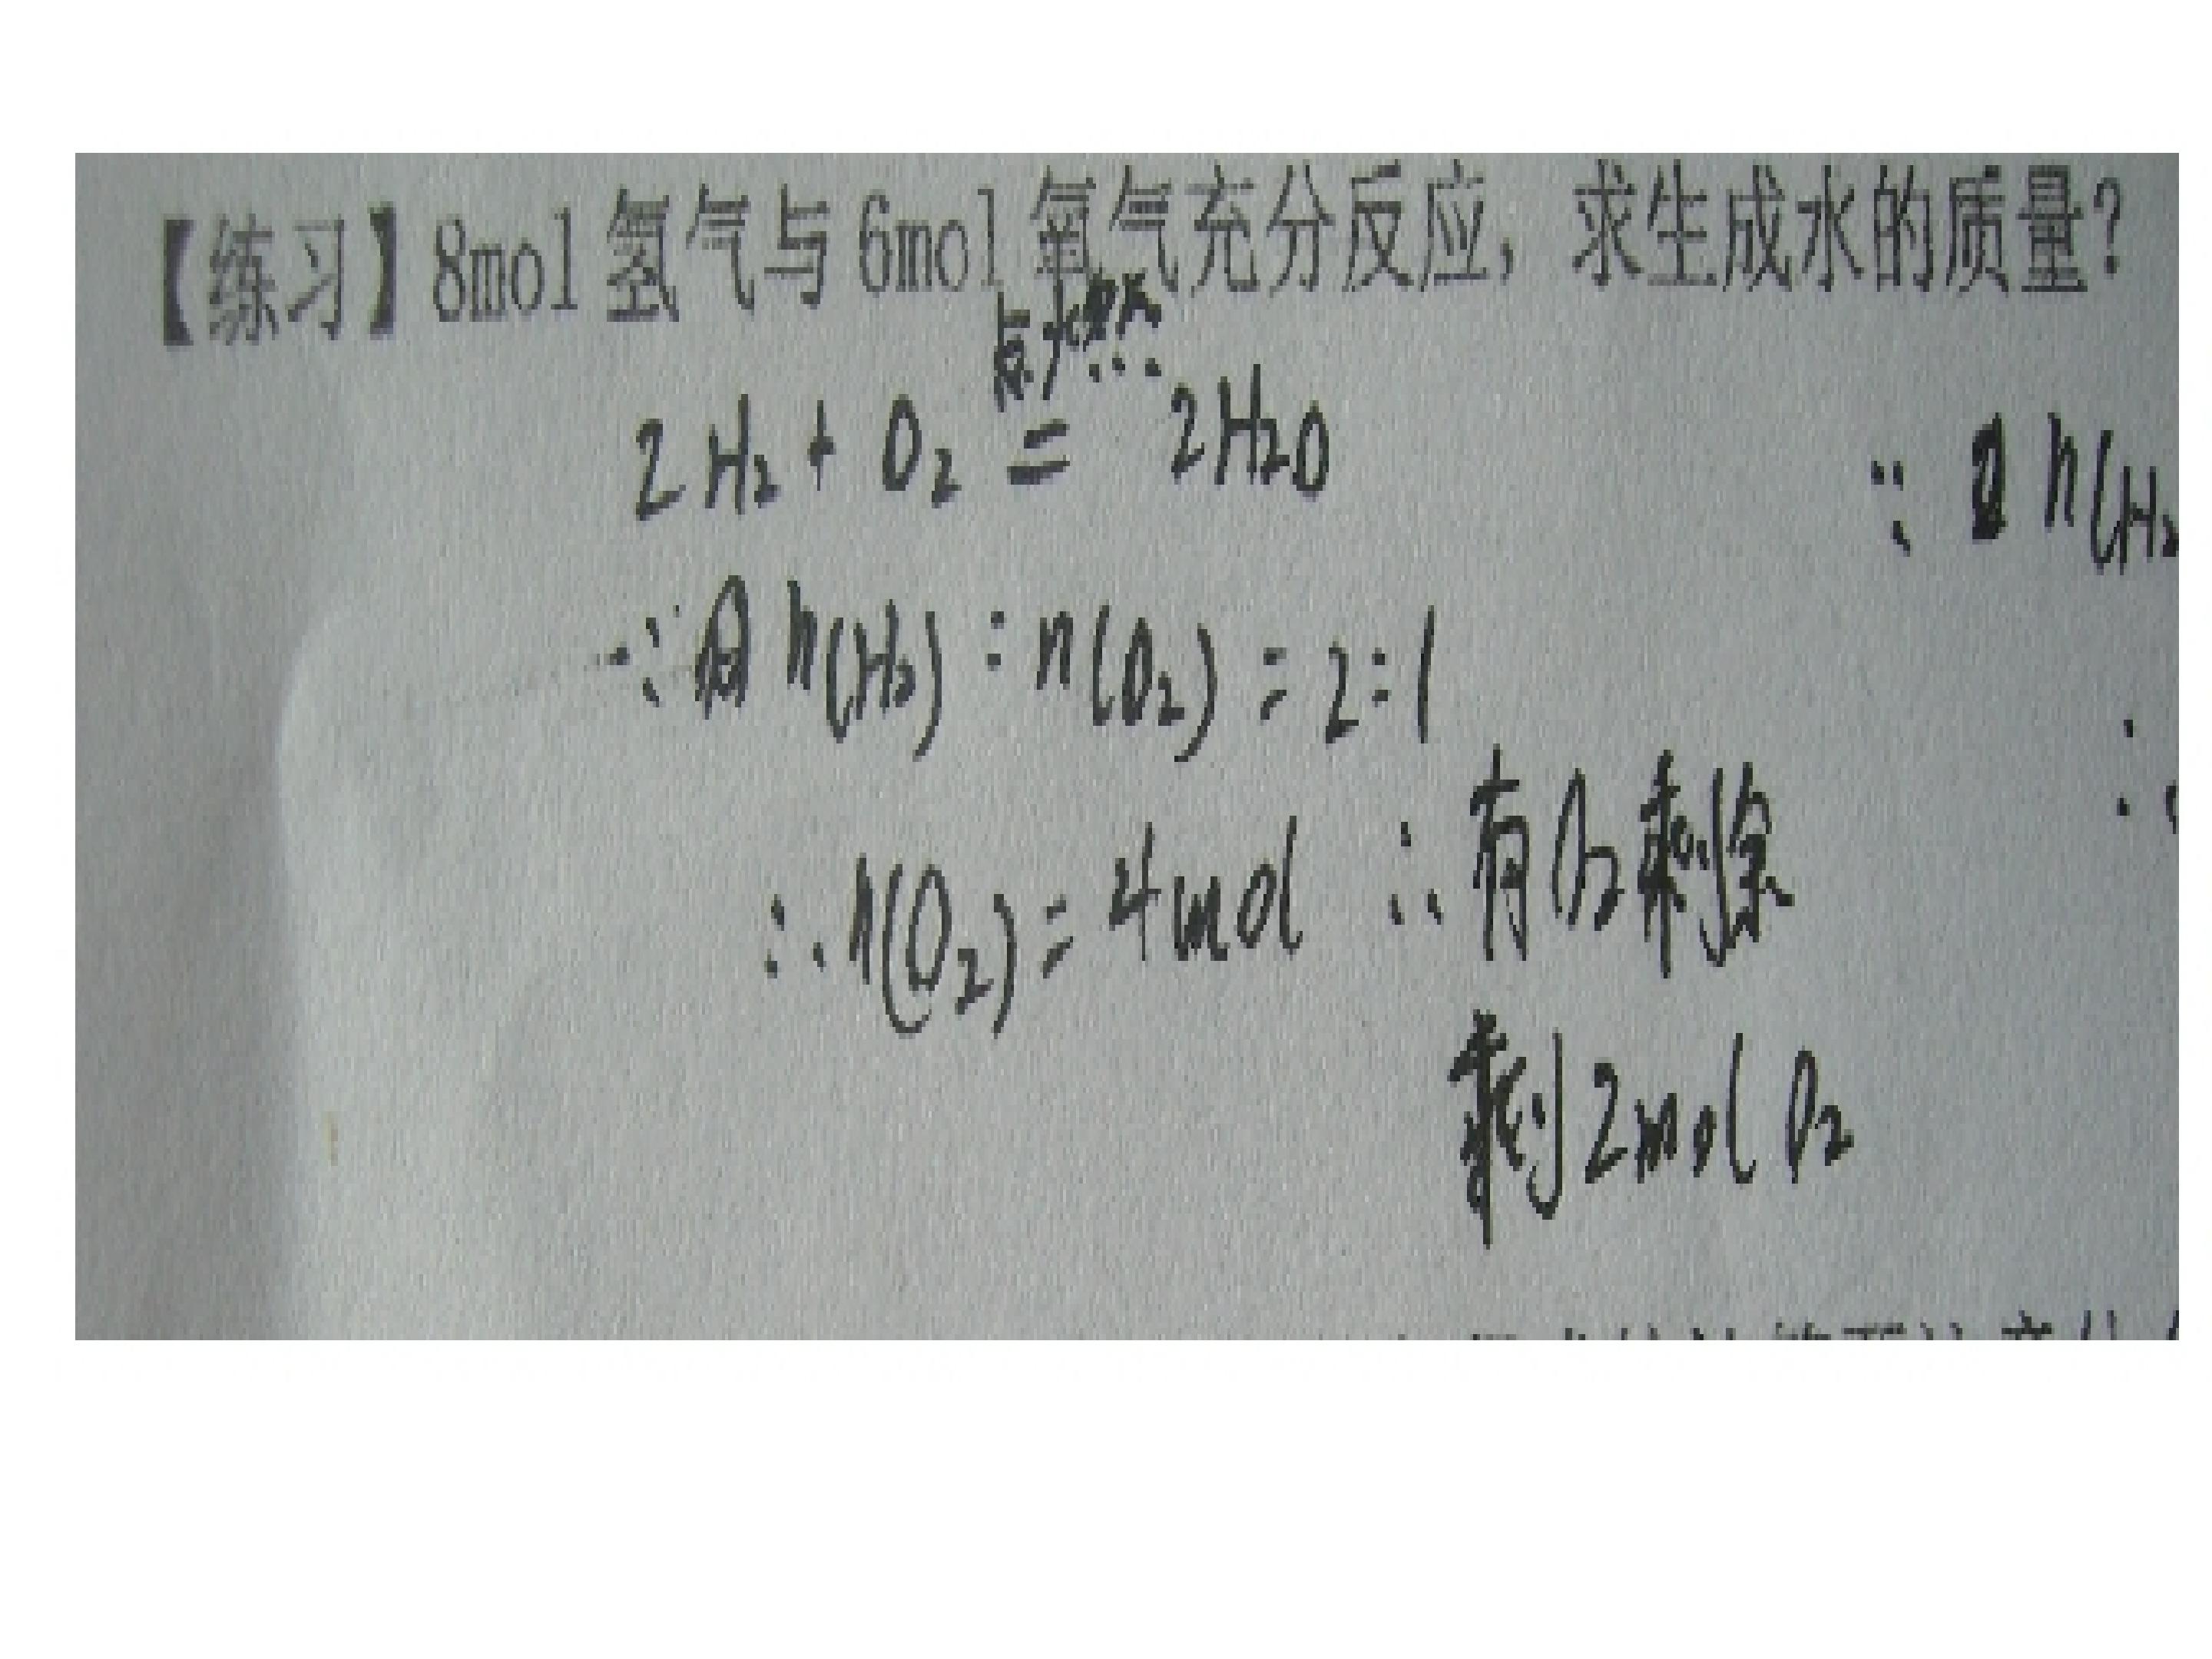 【练习】8mol氢气与6mol氧气充分反应，求生成水的质量？
点燃
2H₂ + O₂ = 2H₂O
∵ n(H₂) : n(O₂) = 2:1
∴ n(O₂) = 4mol ∴ 有O₂剩余
剩2mol O₂
∵ n(H₂